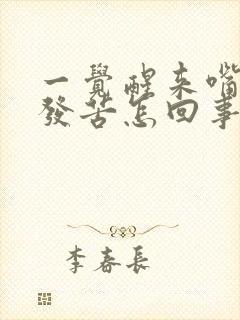 一覺醒来嘴
發苦怎回事
李春長